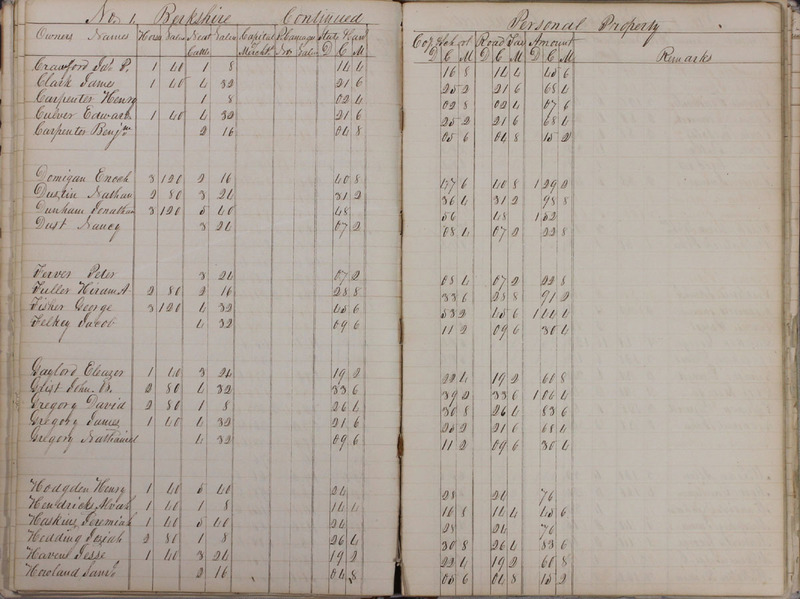 No. 1, Berkshire Continued Personal Property
Owners Names Horses Value Neat Cattle Value Capital Mercht P. Carriages No. Val. State & Can D C M Co. & School D C M Road Tax D C M Amount D C M Remarks
Crawford Job P. 1 40 1 8 14 4 16 8 14 4 45 6
Clark James 1 40 4 32 21 6 25 2 21 6 68 4
Carpenter Henry 1 8 02 4 02 8 02 4 07 6
Culver Edward 1 40 4 32 21 6 25 2 21 6 68 4
Carpenter Benjn. 2 16 04 8 05 6 04 8 15 2
Domigan Enoch 3 120 2 16 40 8 47 6 40 8 129 2
Dustin Nathan 2 80 3 24 31 2 36 4 31 2 98 8
Dunham Jonathan 3 120 5 40 48 56 48 152
Dust Nancy 3 24 07 2 08 4 07 2 22 8
Ferver Peter 3 24 07 2 08 4 07 2 22 8
Fuller Hiram A 2 80 2 16 28 8 33 6 28 8 91 2
Fisher George 3 120 4 32 45 6 53 2 45 6 144 4
Felkey Jacob 4 32 09 6 11 2 09 6 30 4
Gaylord Eleazer 1 40 3 24 19 2 22 4 19 2 60 8
Glist John 2 80 4 32 33 6 39 2 33 6 106 4
Gregory David 2 80 1 8 26 4 30 8 26 4 83 6
Gregory James 1 40 4 32 21 6 25 2 21 6 68 4
Gregory Nathaniel 4 32 09 6 11 2 09 6 30 4
Hodgden Henry 1 40 5 40 24 28 24 76
Hendricks Noah 1 40 1 8 14 4 16 8 14 4 45 6
Haskins Jeremiah 1 40 5 40 24 28 24 76
Hedding Josiah 2 80 1 8 26 4 30 8 26 4 83 6
Havens Jesse 1 40 3 24 19 2 22 4 19 2 60 8
Howland Saml. 2 16 04 8 05 6 04 8 15 2